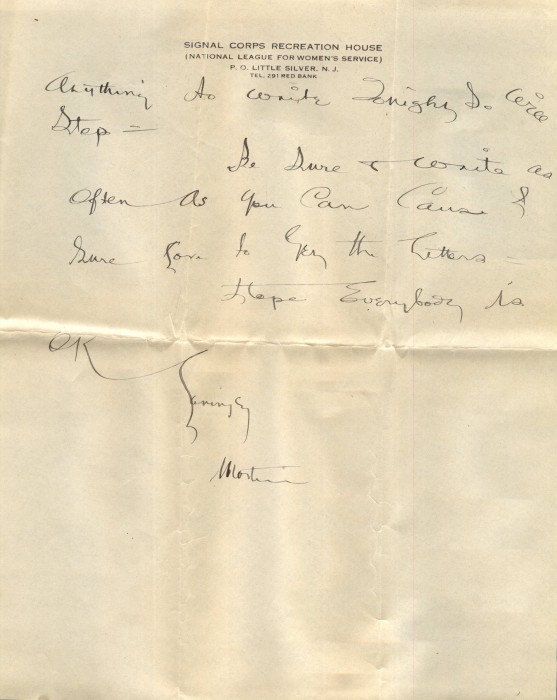 SIGNAL CORPS RECREATION HOUSE
(NATIONAL LEAGUE FOR WOMEN'S SERVICE)
P. O. LITTLE SILVER, N. J.
TEL. 291 RED BANK
Anything to write Tonight So Will
Stop =
Be Sure & write as
Often as you Can Cause I
Sure Love to Get the Letters =
Hope Everybody is
OK
Lovingly